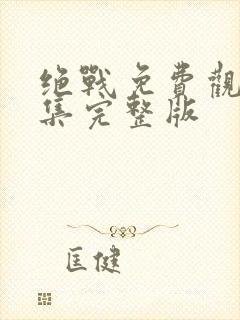 絕戰免費觀
集完整版
匡健